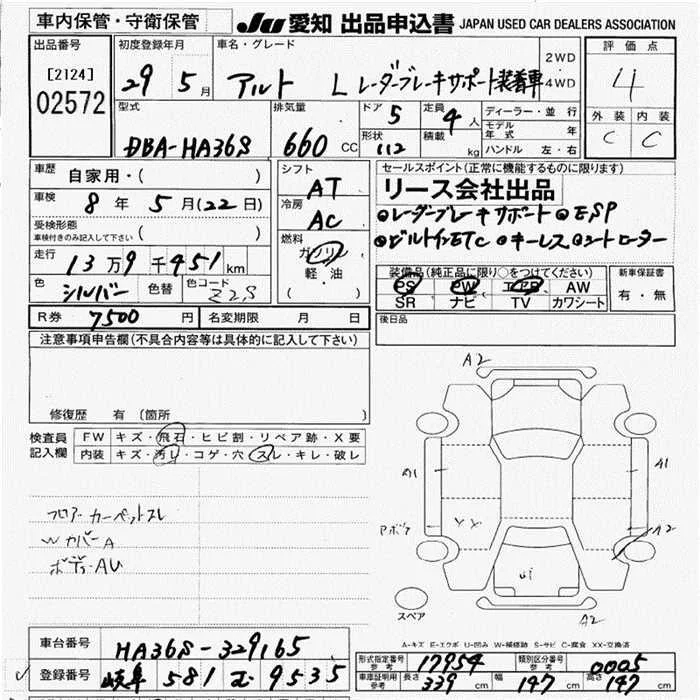 車内保管・守衛保管 JU 愛知 出品申込書 JAPAN USED CAR DEALERS ASSOCIATION
出品番号 初度登録年月 車名・グレード 2WD 評価点
[2124] 29 5月 アルト L レーダーブレーキサポート装着車 4WD 4
02572 型式 排気量 ドア 5 定員 4人 ディーラー・並行 外装 内装
DBA-HA36S 660 CC 形状 112 積載 kg モデル年式 年 C C
ハンドル 左・右
車歴 自家用・( ) シフト AT セールスポイント(正常に機能するものに限ります)
リース会社出品
車検 8年 5月(22日) 冷房 AC ●レーダーブレーキサポート ●ESP
受検形態 車検付きのみ記入して下さい ( ) 燃料 ガソリン ●ビルトインETC ●キーレスコントローター
走行 13万9千451km 軽・油 装備品(純正品に限り○をつけてください) 新車保証書
色 シルバー 色替 色コード Z2S ( ) PS PW エアB AW 有・無
SR ナビ TV カワシート
R券 7500円 名変期限 月 日 後日品
注意事項申告欄(不具合内容等は具体的に記入して下さい)
修復歴 有 (箇所
検査員記入欄 FW キズ・飛石・ヒビ割・リペア跡・X要
内装 キズ・汚り・コゲ・穴・スレ・キレ・破レ
フロアカーペットスレ
Wカバー A
ボディ・AU
A2
A1 A1
A2
スペア
A2
A-キズ E-エクボ U-凹み W-補修跡 S-サビ C-腐食 XX-交換済
車台番号 HA36S-329165
登録番号 岐阜 581 9535
型式指定番号 参考 17954 類別区分番号 参考 0005
車庫証明用 参考 長さ 339 cm 幅 147 cm 高さ 147 cm